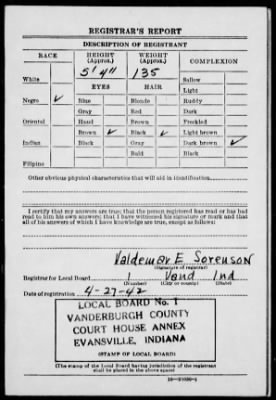 REGISTRAR'S REPORT
DESCRIPTION OF REGISTRANT
RACE HEIGHT (Approx.) WEIGHT (Approx.) COMPLEXION
5' 4" 135
White Sallow
EYES HAIR Light
Negro ✓ Blue Blonde Ruddy
Gray Red Dark
Oriental Hazel Brown Freckled
Brown ✓ Black ✓ Light brown
Indian Black Gray Dark brown ✓
Bald Black
Filipino
Other obvious physical characteristics that will aid in identification
I certify that my answers are true; that the person registered has read or has had
read to him his own answers; that I have witnessed his signature or mark and that
all of his answers of which I have knowledge are true, except as follows:
Valdemar E Sorenson
(Signature of registrar)
Registrar for Local Board 1 Vand Ind
(Number) (City or county) (State)
Date of registration 4-27-42
LOCAL BOARD No. 1
VANDERBURGH COUNTY
COURT HOUSE ANNEX
EVANSVILLE, INDIANA
(STAMP OF LOCAL BOARD)
(The stamp of the Local Board having jurisdiction of the registrant
shall be placed in the above space)